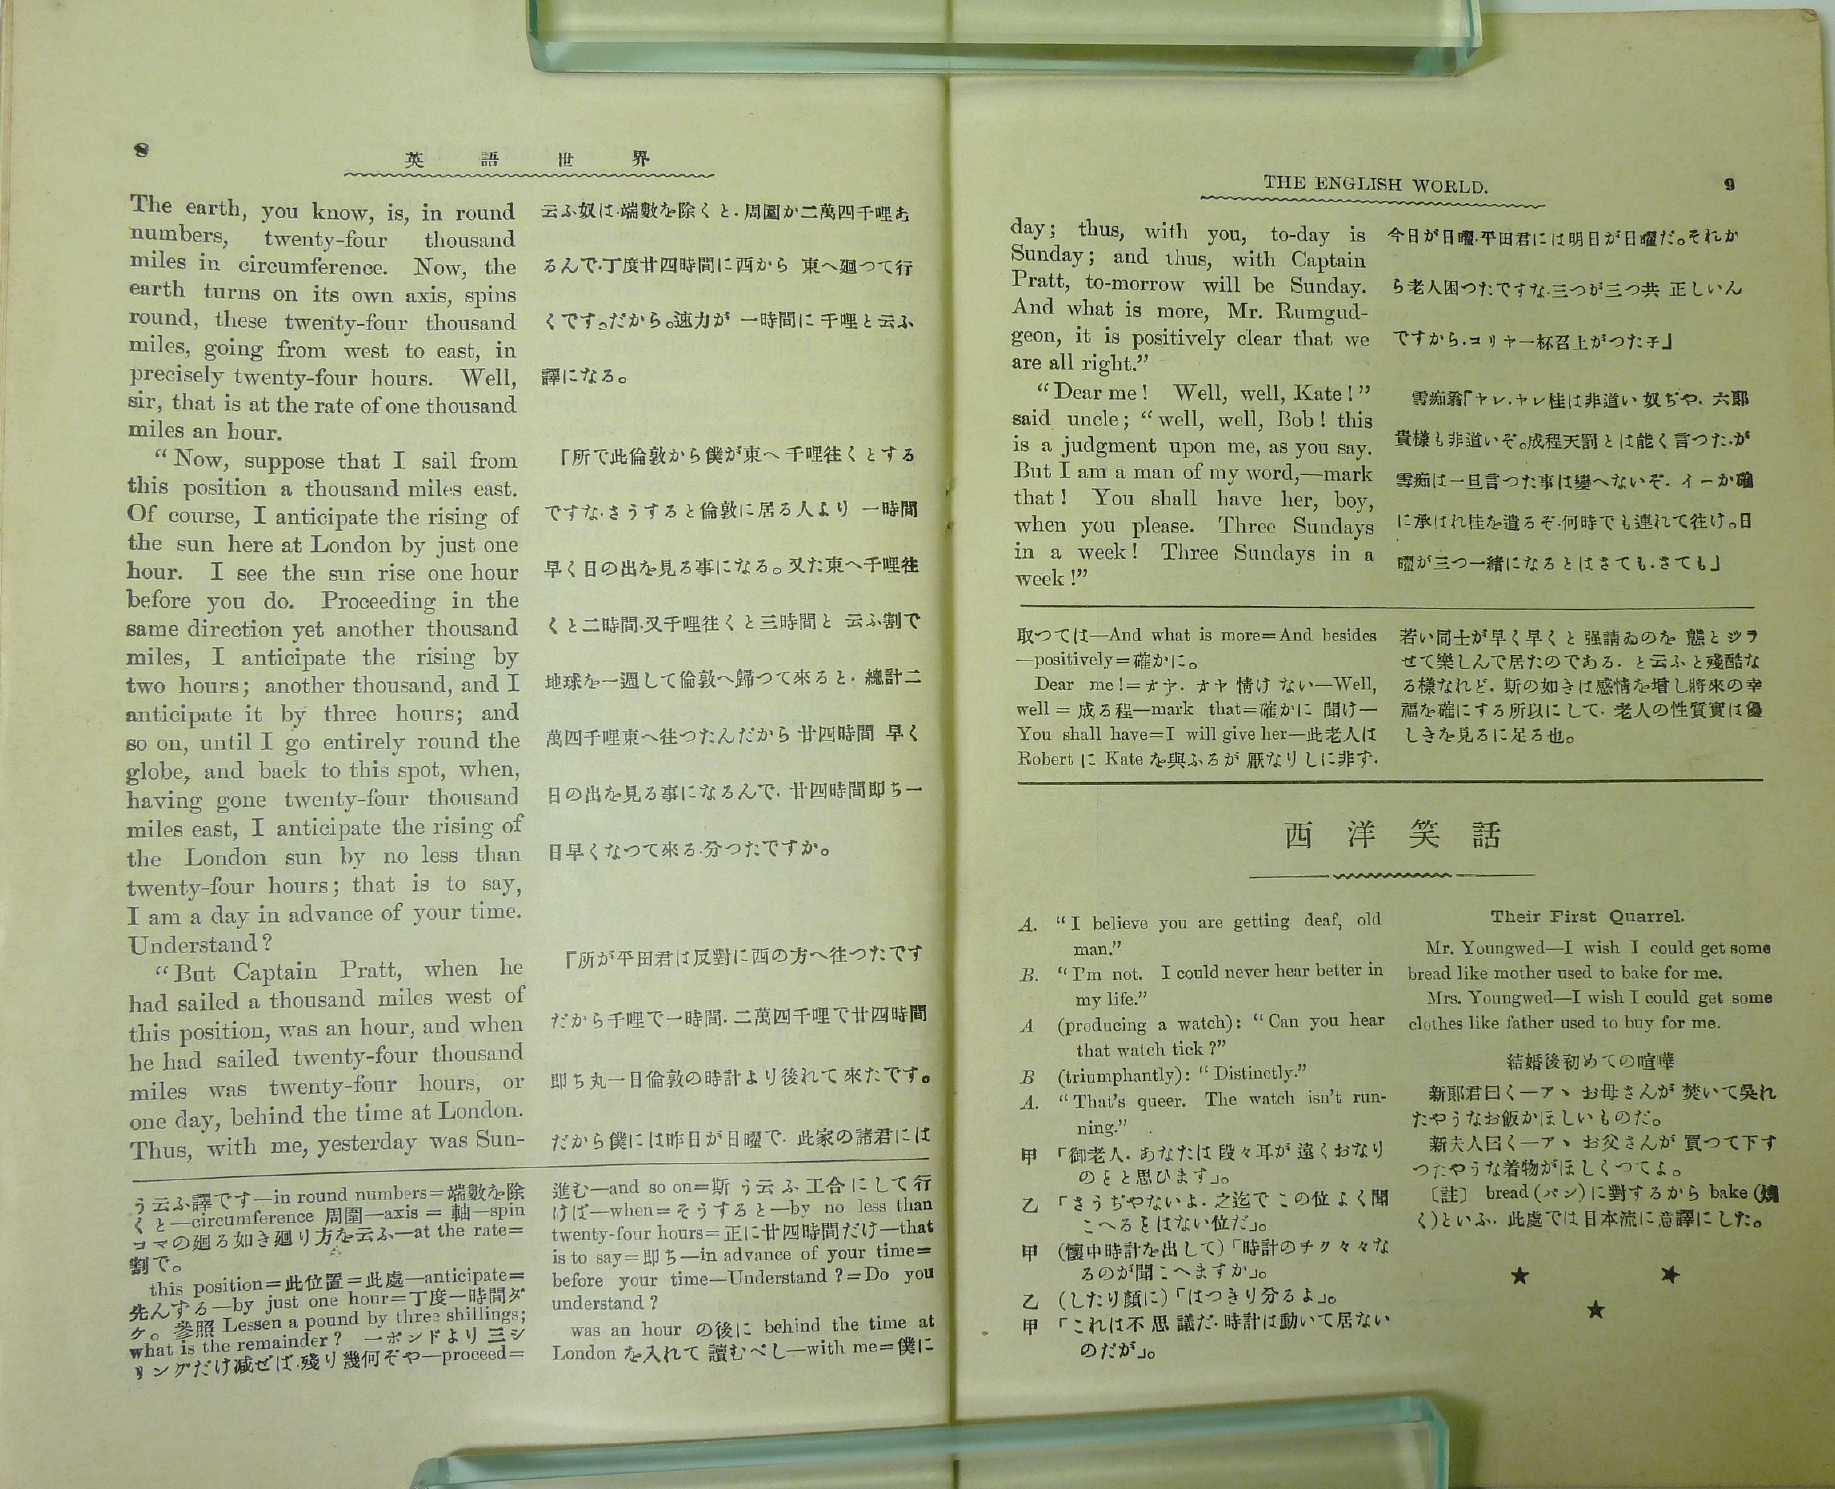 8
英語世界
The earth, you know, is, in round
numbers, twenty-four thousand
miles in circumference. Now, the
earth turns on its own axis, spins
round, these twenty-four thousand
miles, going from west to east, in
precisely twenty-four hours. Well,
sir, that is at the rate of one thousand
miles an hour.
“Now, suppose that I sail from
this position a thousand miles east.
Of course, I anticipate the rising of
the sun here at London by just one
hour. I see the sun rise one hour
before you do. Proceeding in the
same direction yet another thousand
miles, I anticipate the rising by
two hours; another thousand, and I
anticipate it by three hours; and
so on, until I go entirely round the
globe, and back to this spot, when,
having gone twenty-four thousand
miles east, I anticipate the rising of
the London sun by no less than
twenty-four hours; that is to say,
I am a day in advance of your time.
Understand?
“But Captain Pratt, when he
had sailed a thousand miles west of
this position, was an hour, and when
he had sailed twenty-four thousand
miles was twenty-four hours, or
one day, behind the time at London.
Thus, with me, yesterday was Sun-
云ふ奴は、端數を除くと、周圍が二萬四千哩あ
るんで、丁度廿四時間に西から東へ廻つて行
くです。だから。速力が一時間に千哩と云ふ
譯になる。
「所で此倫敦から僕が東へ千哩往くとする
ですな、さうすると倫敦に居る人より一時間
早く日の出を見る事になる。又た東へ千哩往
くと二時間、又千哩往くと三時間と云ふ割で
地球を一週して倫敦へ歸つて來ると、總計二
萬四千哩東へ往つたんだから廿四時間早く
日の出を見る事になるんで、廿四時間即ち一
日早くなつて來る、分つたですか。
「所が平田君は反對に西の方へ往つたです
だから千哩で一時間、二萬四千哩で廿四時間
即ち丸一日倫敦の時計より後れて來たです。
だから僕には昨日が日曜で、此家の諸君には
う云ふ譯です—in round numbers=端數を除
くと—circumference 周圍—axis = 軸—spin
コマの廻る如き廻り方を云ふ—at the rate=
割で。
this position=此位置=此處—anticipate=
先んずる—by just one hour=丁度一時間ダ
ケ。參照 Lessen a pound by three shillings;
what is the remainder? 一ポンドより三シ
リングだけ減ぜば、殘り幾何ぞや—proceed=
進む—and so on=斯う云ふ工合にして行
けば—when=そうすると—by no less than
twenty-four hours=正に廿四時間だけ—that
is to say=即ち—in advance of your time=
before your time—Understand?=Do you
understand?
was an hour の後に behind the time at
London を入れて讀むべし—with me=僕に
THE ENGLISH WORLD.
9
day; thus, with you, to-day is
Sunday; and thus, with Captain
Pratt, to-morrow will be Sunday.
And what is more, Mr. Rumgud-
geon, it is positively clear that we
are all right.”
“Dear me! Well, well, Kate!”
said uncle; “well, well, Bob! this
is a judgment upon me, as you say.
But I am a man of my word,—mark
that! You shall have her, boy,
when you please. Three Sundays
in a week! Three Sundays in a
week!”
今日が日曜、平田君には明日が日曜だ。それか
ら老人困つたですな、三つが三つ共正しいん
ですから、コリャ一杯召上がつた子」
雲痴翁「ヤレ、ヤレ桂は非道い奴ぢや、六郎
貴樣も非道いぞ。成程天罰とは能く言つた、が
雲痴は一旦言つた事は變へないぞ、イーか確
に承はれ桂を遣るぞ、何時でも連れて往け。日
曜が三つ一緒になるとはさても、さても」
取つては—And what is more=And besides
—positively=確かに。
Dear me!=オヤ、オヤ情けない—Well,
well = 成る程—mark that=確かに聞け—
You shall have=I will give her—此老人は
Robert に Kate を與ふるが厭なりしに非ず、
若い同士が早く早くと强請ゐのを態とジラ
せて樂しんで居たのである、と云ふと殘酷な
る樣なれど、斯の如きは感情を増し將來の幸
福を確にする所以にして、老人の性質實は優
しきを見るに足る也。
西洋笑話
A. “I believe you are getting deaf, old
man.”
B. “I’m not. I could never hear better in
my life.”
A (producing a watch): “Can you hear
that watch tick?”
B (triumphantly): “Distinctly.”
A. “That’s queer. The watch isn’t run-
ning.”
甲「御老人、あなたは段々耳が遠くおなり
のことと思ひます」。
乙「さうぢやないよ、之迄でこの位よく聞
こへることはない位だ」。
甲 (懷中時計を出して)「時計のチク々々な
るのが聞こへますか」。
乙 (したり顔に)「はつきり分るよ」。
甲「これは不思議だ、時計は動いて居ない
のだが」。
Their First Quarrel.
Mr. Youngwed—I wish I could get some
bread like mother used to bake for me.
Mrs. Youngwed—I wish I could get some
clothes like father used to buy for me.
結婚後初めての喧嘩
新郞君曰く—アヽお母さんが焚いて吳れ
たやうなお飯がほしいものだ。
新夫人曰く—アヽお父さんが買つて下す
つたやうな着物がほしくつてよ。
〔註〕 bread (パン)に對するから bake (燒
く)といふ、此處では日本流に意譯にした。